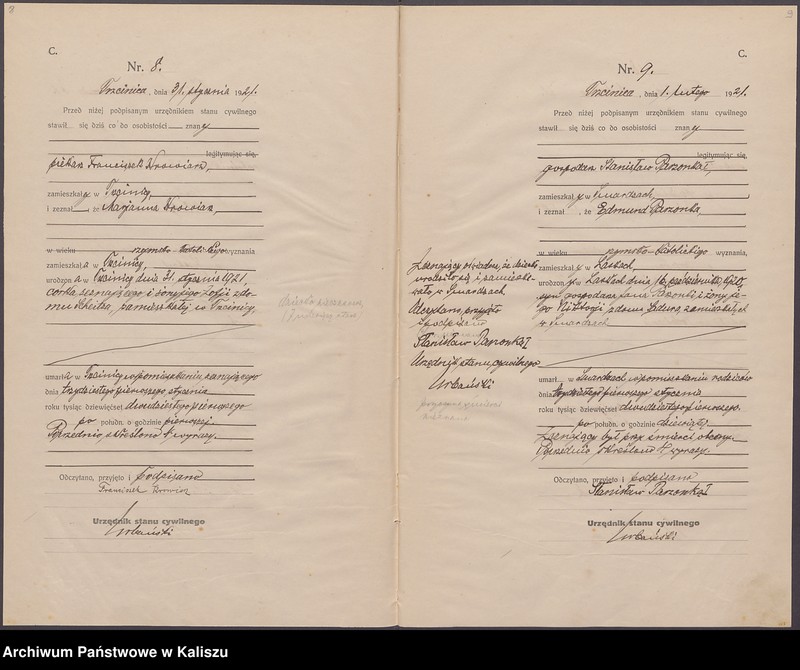 8
C.
Nr. 8.
Trzcinica, dnia 31. stycznia 1921.
Przed niżej podpisanym urzędnikiem stanu cywilnego
stawił się dziś co do osobistości znany
legitymując się,
piekarz Franciszek
zamieszkały w Trzcinicy,
i zeznał, że Marjanna
w wieku rzymsko-katolickiego wyznania
zamieszkała w Trzcinicy,
urodzona w Trzcinicy dnia 31. stycznia 1921,
córka zeznającego i żony jego Zofji z do-
mu zamieszkałej w Trzcinicy,
umarła w Trzcinicy w pomieszkaniu zeznającego
dnia trzydziestego pierwszego stycznia
roku tysiąc dziewięćset dwudziestego pierwszego
po połudn. o godzinie pierwszej.
Poprzednio skreślono 4 wyrazy.
Odczytano, przyjęto i podpisano
Franciszek
Urzędnik stanu cywilnego
Urbański
9
C.
Nr. 9.
Trzcinica, dnia 1. lutego 1921.
Przed niżej podpisanym urzędnikiem stanu cywilnego
stawił się dziś co do osobistości znany
legitymując się,
gospodarz Stanisław
zamieszkały w
i zeznał, że Edmund
w wieku rzymsko-katolickiego wyznania,
zamieszkały w Laskach,
urodzony w Laskach dnia 16. października 1920,
syn gospodarza Jana i żony je-
go Wiktorji z domu zamieszkałych
w
umarł w w pomieszkaniu rodziców
dnia trzydziestego pierwszego stycznia
roku tysiąc dziewięćset dwudziestego pierwszego.
po połudn. o godzinie dziewiątej
Zeznający był przy śmierci obecny.
Poprzednio skreślono 4 wyrazy.
Odczytano, przyjęto i podpisano
Stanisław
Urzędnik stanu cywilnego
Urbański
Zeznający oświadcza, że dziecko
urodziło się i zamiesz-
kało w
Odczytano, przyjęto
i podpisano
Stanisław
Urzędnik stanu cywilnego
Urbański
Archiwum Państwowe w Kaliszu